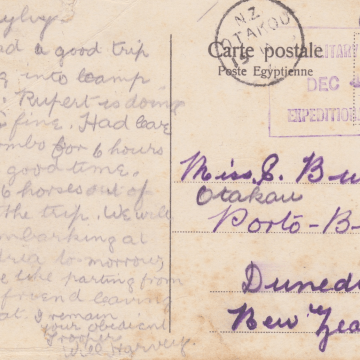 ad a good trip
into Camp
. Rupert is doing
fine. Had leave
mbo for 6 hours
good time.
6 horses out of
the trip. We will
mbarking at
to-morrow
like parting from
friend leaving
at. I remain
your obedient
Trooper
Harvey
Carte postale
Poste Egyptienne
N.Z.
OTAKOU
DEC 4
EXPEDITION
Miss. C. Bu
Otakau
Porto-B
Dunedi
New Zea